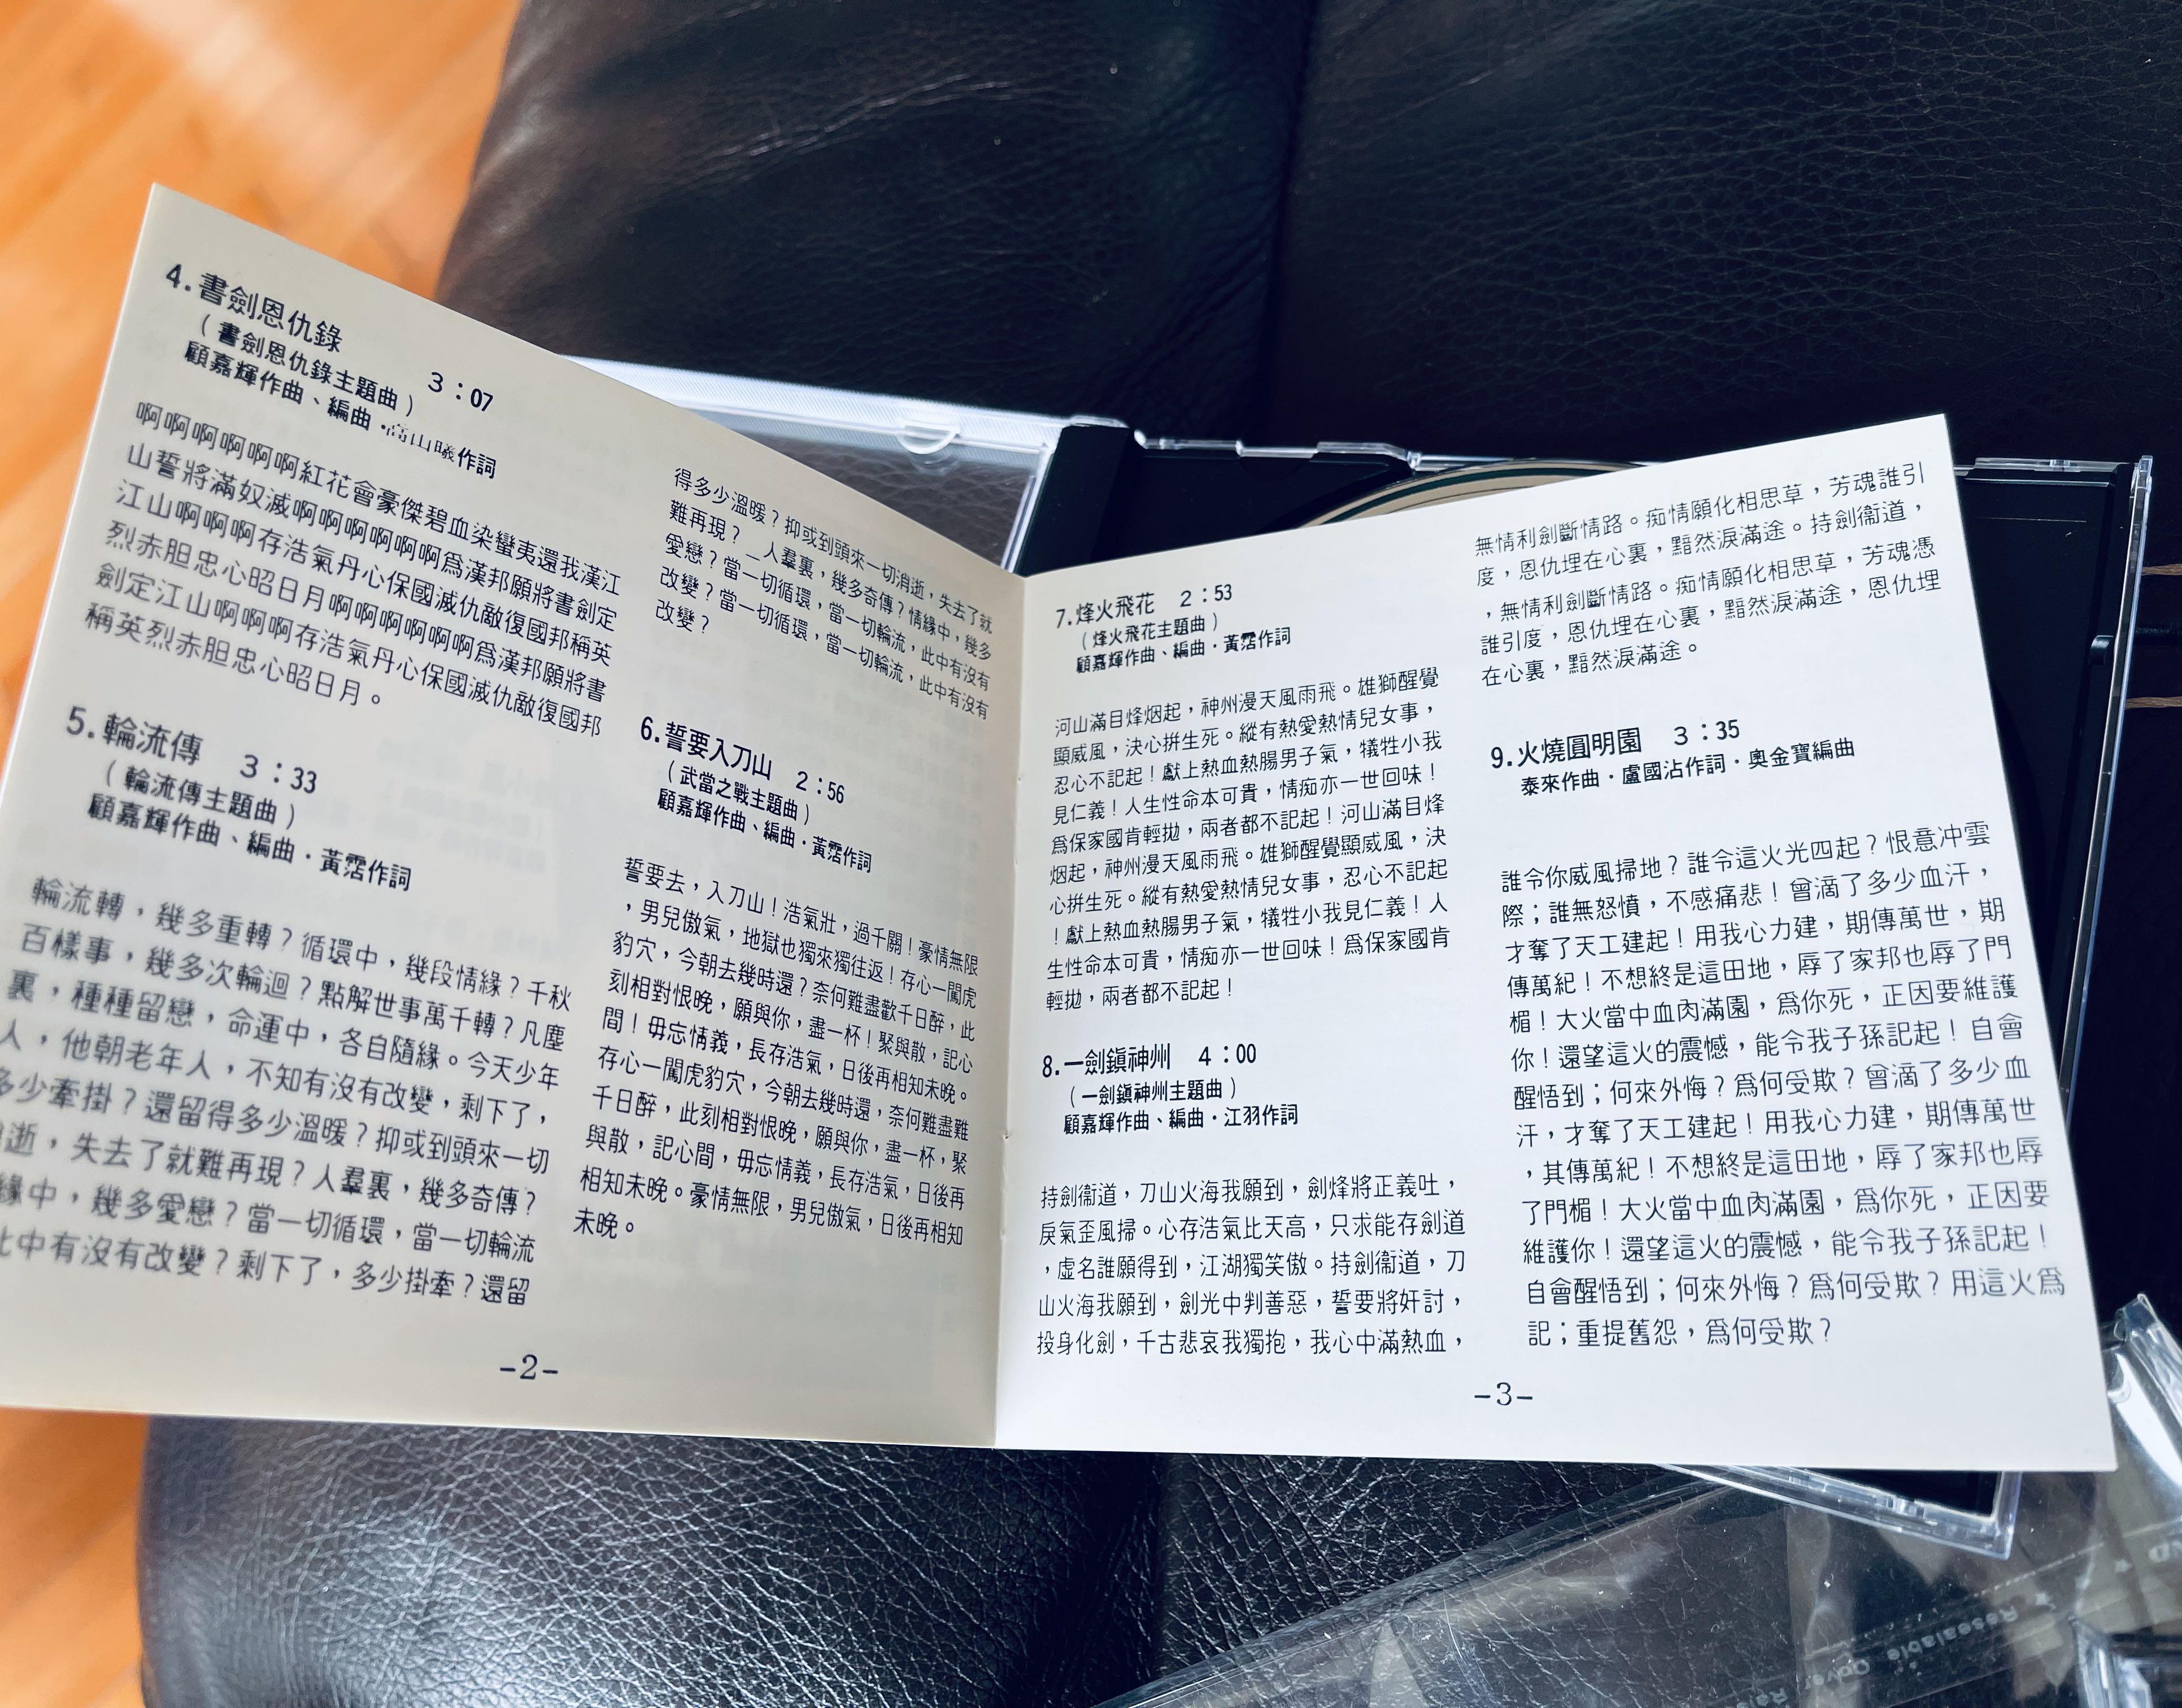 4.書劍恩仇錄 3：07
（書劍恩仇錄主題曲）
顧嘉輝作曲、編曲・高山曦作詞
啊啊啊啊啊啊紅花會豪傑碧血染蠻夷還我漢江
山誓將滿奴滅啊啊啊啊啊啊爲漢邦願將書劍定
江山啊啊啊存浩氣丹心保國滅仇敵復國邦稱英
烈赤胆忠心昭日月啊啊啊啊啊啊爲漢邦願將書
劍定江山啊啊啊存浩氣丹心保國滅仇敵復國邦
稱英烈赤胆忠心昭日月。
5.輪流傳 3：33
（輪流傳主題曲）
顧嘉輝作曲、編曲・黃霑作詞
輪流轉，幾多重轉？循環中，幾段情緣？千秋
百樣事，幾多次輪迴？點解世事萬千轉？凡塵
裏，種種留戀，命運中，各自隨緣。今天少年
人，他朝老年人，不知有沒有改變，剩下了，
多少牽掛？還留得多少溫暖？抑或到頭來一切
逝，失去了就難再現？人羣裏，幾多奇傳？
緣中，幾多愛戀？當一切循環，當一切輪流
此中有沒有改變？剩下了，多少掛牽？還留
得多少溫暖？抑或到頭來一切消逝，失去了就
難再現？＿人羣裏，幾多奇傳？情緣中，幾多
愛戀？當一切循環，當一切輪流，此中有沒有
改變？當一切循環，當一切輪流，此中有沒有
改變？
6.誓要入刀山 2：56
（武當之戰主題曲）
顧嘉輝作曲、編曲・黃霑作詞
誓要去，入刀山！浩氣壯，過千關！豪情無限
，男兒傲氣，地獄也獨來獨往返！存心一闖虎
豹穴，今朝去幾時還？奈何難盡歡千日醉，此
刻相對恨晚，願與你，盡一杯！聚與散，記心
間！毋忘情義，長存浩氣，日後再相知未晚。
存心一闖虎豹穴，今朝去幾時還，奈何難盡難
千日醉，此刻相對恨晚，願與你，盡一杯，聚
與散，記心間，毋忘情義，長存浩氣，日後再
相知未晚。豪情無限，男兒傲氣，日後再相知
未晚。
-2-
7.烽火飛花 2：53
（烽火飛花主題曲）
顧嘉輝作曲、編曲・黃霑作詞
河山滿目烽烟起，神州漫天風雨飛。雄獅醒覺
顯威風，決心拚生死。縱有熱愛熱情兒女事，
忍心不記起！獻上熱血熱腸男子氣，犧牲小我
見仁義！人生性命本可貴，情痴亦一世回味！
爲保家國肯輕拋，兩者都不記起！河山滿目烽
烟起，神州漫天風雨飛。雄獅醒覺顯威風，決
心拚生死。縱有熱愛熱情兒女事，忍心不記起
！獻上熱血熱腸男子氣，犧牲小我見仁義！人
生性命本可貴，情痴亦一世回味！爲保家國肯
輕拋，兩者都不記起！
8.一劍鎮神州 4：00
（一劍鎮神州主題曲）
顧嘉輝作曲、編曲・江羽作詞
持劍衞道，刀山火海我願到，劍烽將正義吐，
戾氣歪風掃。心存浩氣比天高，只求能存劍道
，虛名誰願得到，江湖獨笑傲。持劍衞道，刀
山火海我願到，劍光中判善惡，誓要將奸討，
投身化劍，千古悲哀我獨抱，我心中滿熱血，
無情利劍斷情路。痴情願化相思草，芳魂誰引
度，恩仇埋在心裏，黯然淚滿途。持劍衞道，
，無情利劍斷情路。痴情願化相思草，芳魂憑
誰引度，恩仇埋在心裏，黯然淚滿途，恩仇埋
在心裏，黯然淚滿途。
9.火燒圓明園 3：35
泰來作曲・盧國沾作詞・奧金寶編曲
誰令你威風掃地？誰令這火光四起？恨意冲雲
際；誰無怒憤，不感痛悲！曾滴了多少血汗，
才奪了天工建起！用我心力建，期傳萬世，期
傳萬紀！不想終是這田地，辱了家邦也辱了門
楣！大火當中血肉滿園，爲你死，正因要維護
你！還望這火的震憾，能令我子孫記起！自會
醒悟到；何來外悔？爲何受欺？曾滴了多少血
汗，才奪了天工建起！用我心力建，期傳萬世
，其傳萬紀！不想終是這田地，辱了家邦也辱
了門楣！大火當中血肉滿園，爲你死，正因要
維護你！還望這火的震憾，能令我子孫記起！
自會醒悟到；何來外悔？爲何受欺？用這火爲
記；重提舊怨，爲何受欺？
-3-
Resealable